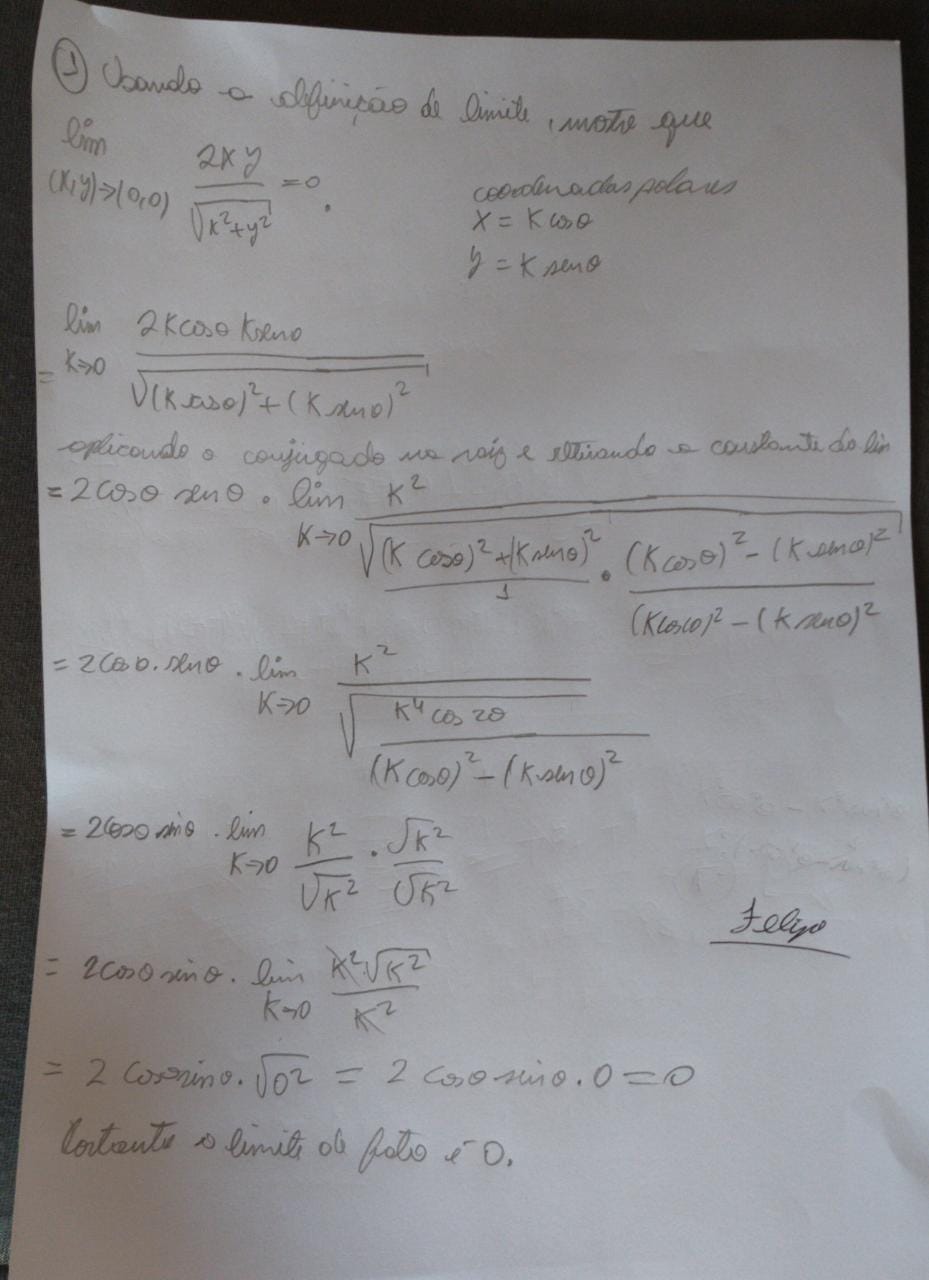 ① Usando a definição de limite, mostre que
lim (x,y)→(0,0) 2xy / √(x²+y²) = 0.
coordenadas polares
x = K cosθ
y = K senθ
= lim K→0 2K cosθ K senθ / √((K cosθ)² + (K senθ)²)
aplicando o conjugado na raiz e retirando a constante do lim
= 2 cosθ senθ . lim K→0 K² / √( ((K cosθ)² + (K senθ)²)/1 . ((K cosθ)² - (K senθ)²) / ((K cosθ)² - (K senθ)²) )
= 2 cosθ . senθ . lim K→0 K² / √( K⁴ cos 2θ / ((K cosθ)² - (K senθ)²) )
= 2 cosθ sinθ . lim K→0 K²/√K² . √K²/√K²
= 2 cosθ sinθ . lim K→0 K² √K² / K²
= 2 cosθ sinθ . √0² = 2 cosθ sinθ . 0 = 0
Portanto o limite de fato é 0.
Felipe